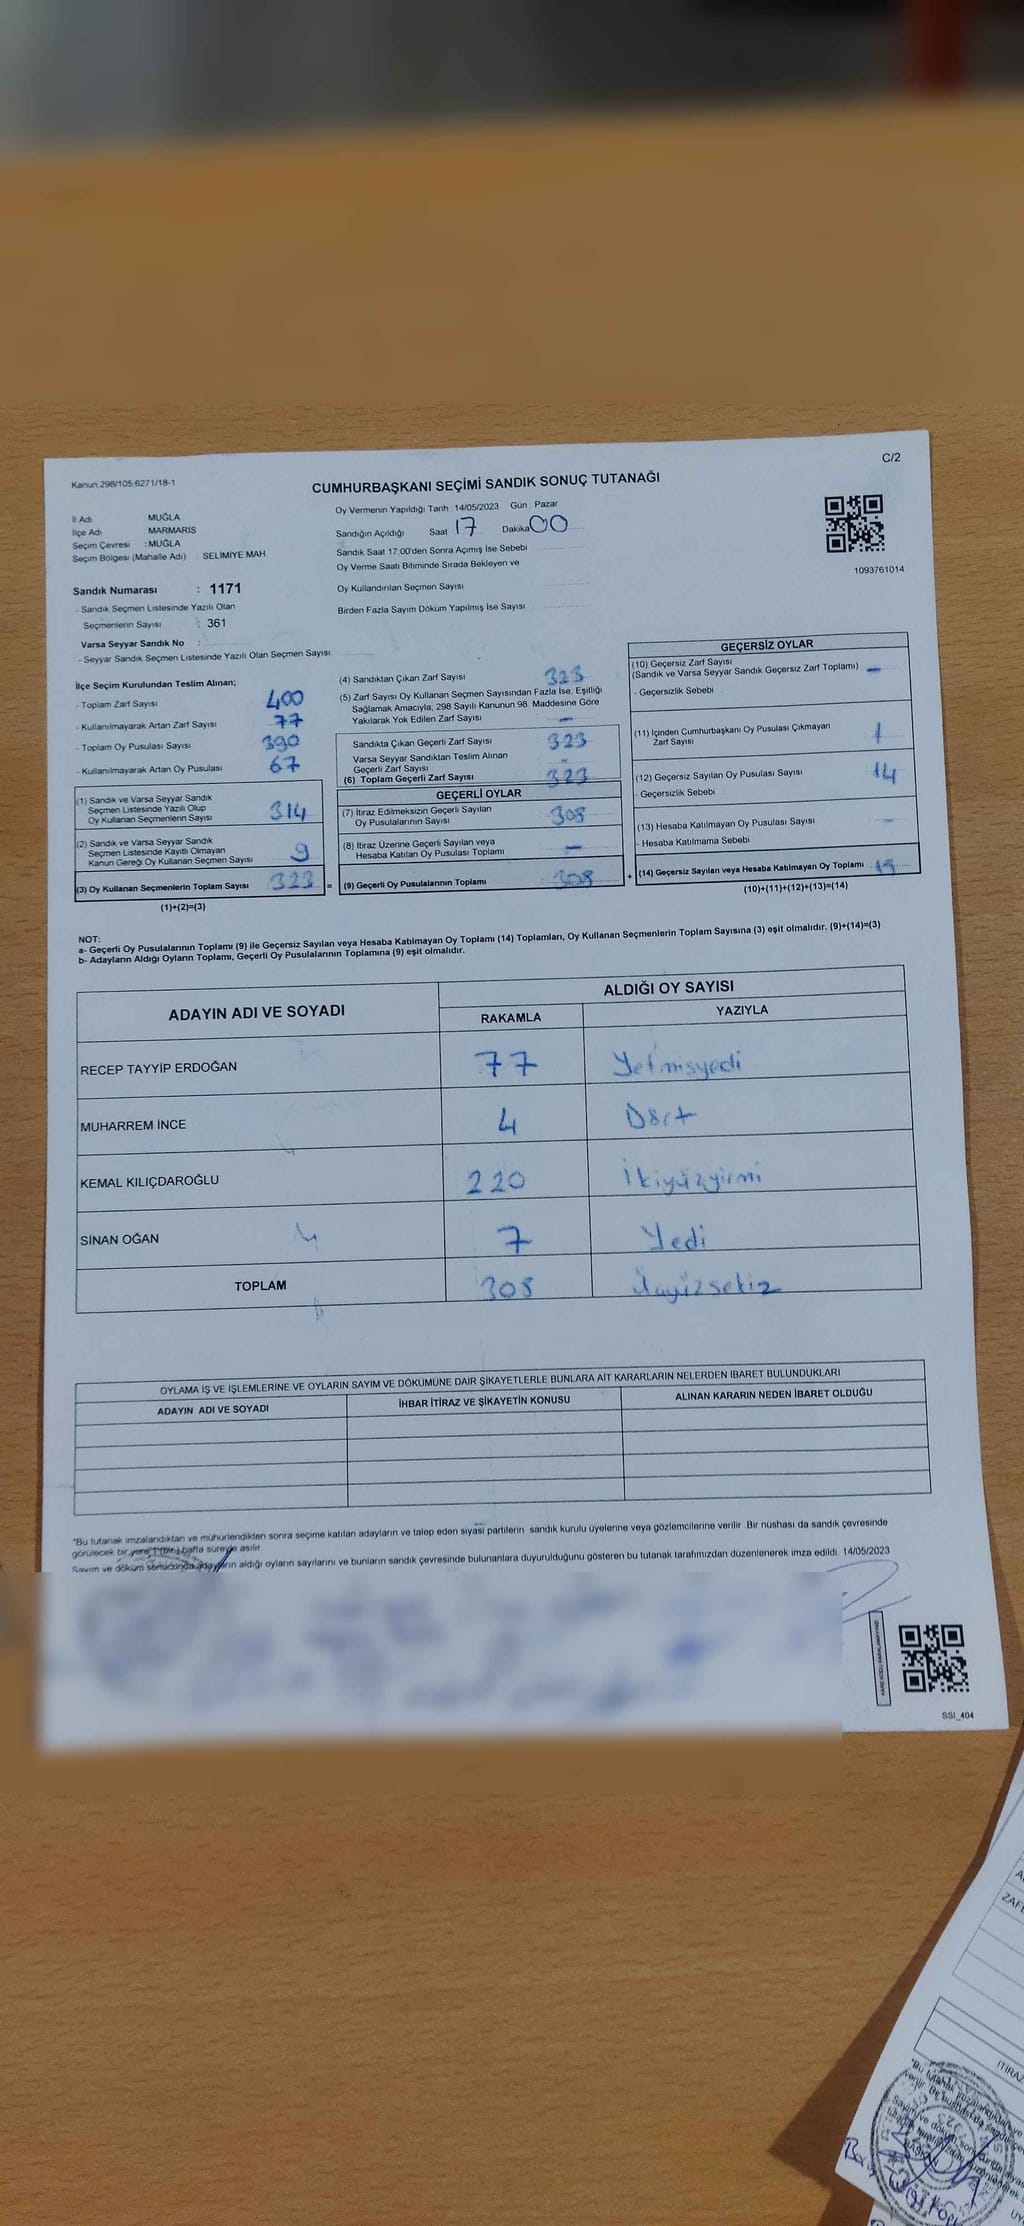 C/2
Kanun.298/105,6271/18-1
CUMHURBAŞKANI SEÇİMİ SANDIK SONUÇ TUTANAĞI
İl Adı MUĞLA
İlçe Adı MARMARİS
Seçim Çevresi :MUĞLA
Seçim Bölgesi (Mahalle Adı) SELİMİYE MAH
Oy Vermenin Yapıldığı Tarih : 14/05/2023 Gün : Pazar
Sandığın Açıldığı Saat 17 Dakika 00
Sandık Saat 17:00'den Sonra Açımış İse Sebebi
Oy Verme Saati Bitiminde Sırada Bekleyen ve
Oy Kullandırılan Seçmen Sayısı
Birden Fazla Sayım Döküm Yapılmış İse Sayısı
1093761014
Sandık Numarası : 1171
- Sandık Seçmen Listesinde Yazılı Olan
Seçmenlerin Sayısı : 361
Varsa Seyyar Sandık No :
- Seyyar Sandık Seçmen Listesinde Yazılı Olan Seçmen Sayısı:
İlçe Seçim Kurulundan Teslim Alınan;
- Toplam Zarf Sayısı 400
- Kullanılmayarak Artan Zarf Sayısı 77
- Toplam Oy Pusulası Sayısı 390
- Kullanılmayarak Artan Oy Pusulası 67
(1) Sandık ve Varsa Seyyar Sandık
Seçmen Listesinde Yazılı Olup
Oy Kullanan Seçmenlerin Sayısı 314
(2) Sandık ve Varsa Seyyar Sandık
Seçmen Listesinde Kayıtlı Olmayan
Kanun Gereği Oy Kullanan Seçmen Sayısı 9
(3) Oy Kullanan Seçmenlerin Toplam Sayısı 323 =
(1)+(2)=(3)
(4) Sandıktan Çıkan Zarf Sayısı 323
(5) Zarf Sayısı Oy Kullanan Seçmen Sayısından Fazla İse, Eşitliği
Sağlamak Amacıyla, 298 Sayılı Kanunun 98. Maddesine Göre
Yakılarak Yok Edilen Zarf Sayısı –
Sandıkta Çıkan Geçerli Zarf Sayısı 323
Varsa Seyyar Sandıktan Teslim Alınan
Geçerli Zarf Sayısı –
(6) Toplam Geçerli Zarf Sayısı 323
GEÇERLİ OYLAR
(7) İtiraz Edilmeksizin Geçerli Sayılan
Oy Pusulalarının Sayısı 308
(8) İtiraz Üzerine Geçerli Sayılan veya
Hesaba Katılan Oy Pusulası Toplamı –
(9) Geçerli Oy Pusulalarının Toplamı 308 +
GEÇERSİZ OYLAR
(10) Geçersiz Zarf Sayısı
(Sandık ve Varsa Seyyar Sandık Geçersiz Zarf Toplamı) –
- Geçersizlik Sebebi
(11) İçinden Cumhurbaşkanı Oy Pusulası Çıkmayan
Zarf Sayısı 1
(12) Geçersiz Sayılan Oy Pusulası Sayısı 14
- Geçersizlik Sebebi
(13) Hesaba Katılmayan Oy Pusulası Sayısı –
- Hesaba Katılmama Sebebi
(14) Geçersiz Sayılan veya Hesaba Katılmayan Oy Toplamı 15
(10)+(11)+(12)+(13)=(14)
NOT:
a- Geçerli Oy Pusulalarının Toplamı (9) ile Geçersiz Sayılan veya Hesaba Katılmayan Oy Toplamı (14) Toplamları, Oy Kullanan Seçmenlerin Toplam Sayısına (3) eşit olmalıdır. (9)+(14)=(3)
b- Adayların Aldığı Oyların Toplamı, Geçerli Oy Pusulalarının Toplamına (9) eşit olmalıdır.
ADAYIN ADI VE SOYADI ALDIĞI OY SAYISI
RAKAMLA YAZIYLA
RECEP TAYYİP ERDOĞAN 77 Yetmişyedi
MUHARREM İNCE 4 Dört
KEMAL KILIÇDAROĞLU 220 İkiyüzyirmi
SİNAN OĞAN 7 Yedi
TOPLAM 308 Üçyüzsekiz
OYLAMA İŞ VE İŞLEMLERİNE VE OYLARIN SAYIM VE DÖKÜMÜNE DAİR ŞİKAYETLERLE BUNLARA AİT KARARLARIN NELERDEN İBARET BULUNDUKLARI
ADAYIN ADI VE SOYADI İHBAR İTİRAZ VE ŞİKAYETİN KONUSU ALINAN KARARIN NEDEN İBARET OLDUĞU
*Bu tutanak imzalandıktan ve mühürlendikten sonra seçime katılan adayların ve talep eden siyasi partilerin sandık kurulu üyelerine veya gözlemcilerine verilir. Bir nüshası da sandık çevresinde
görülecek bir yere 1 (bir) hafta süreyle asılır.
Sayım ve döküm sonucunda adayların aldığı oyların sayılarını ve bunların sandık çevresinde bulunanlara duyurulduğunu gösteren bu tutanak tarafımızdan düzenlenerek imza edildi. 14/05/2023
SSI_404
ZAFE
İTİRAZ